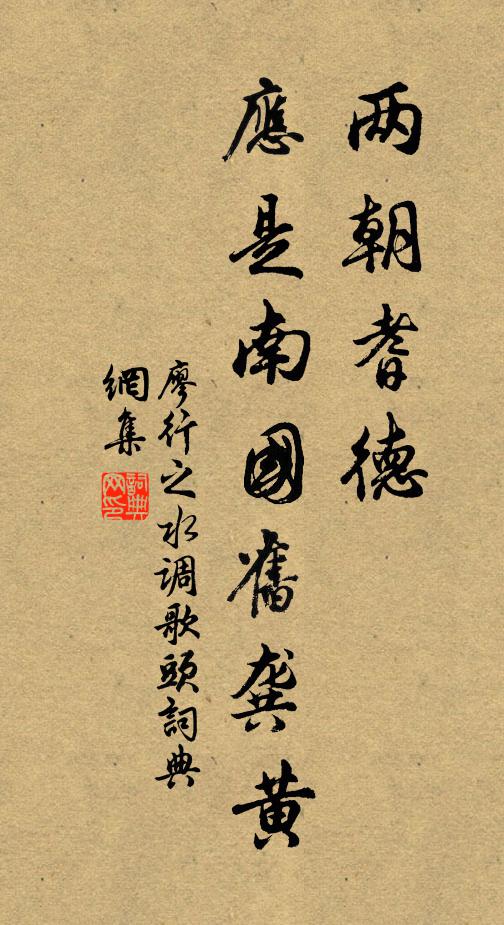 两朝耆德
應是南國舊龔黄
廖行之水调歌頭詞典
網集
詞典
网印